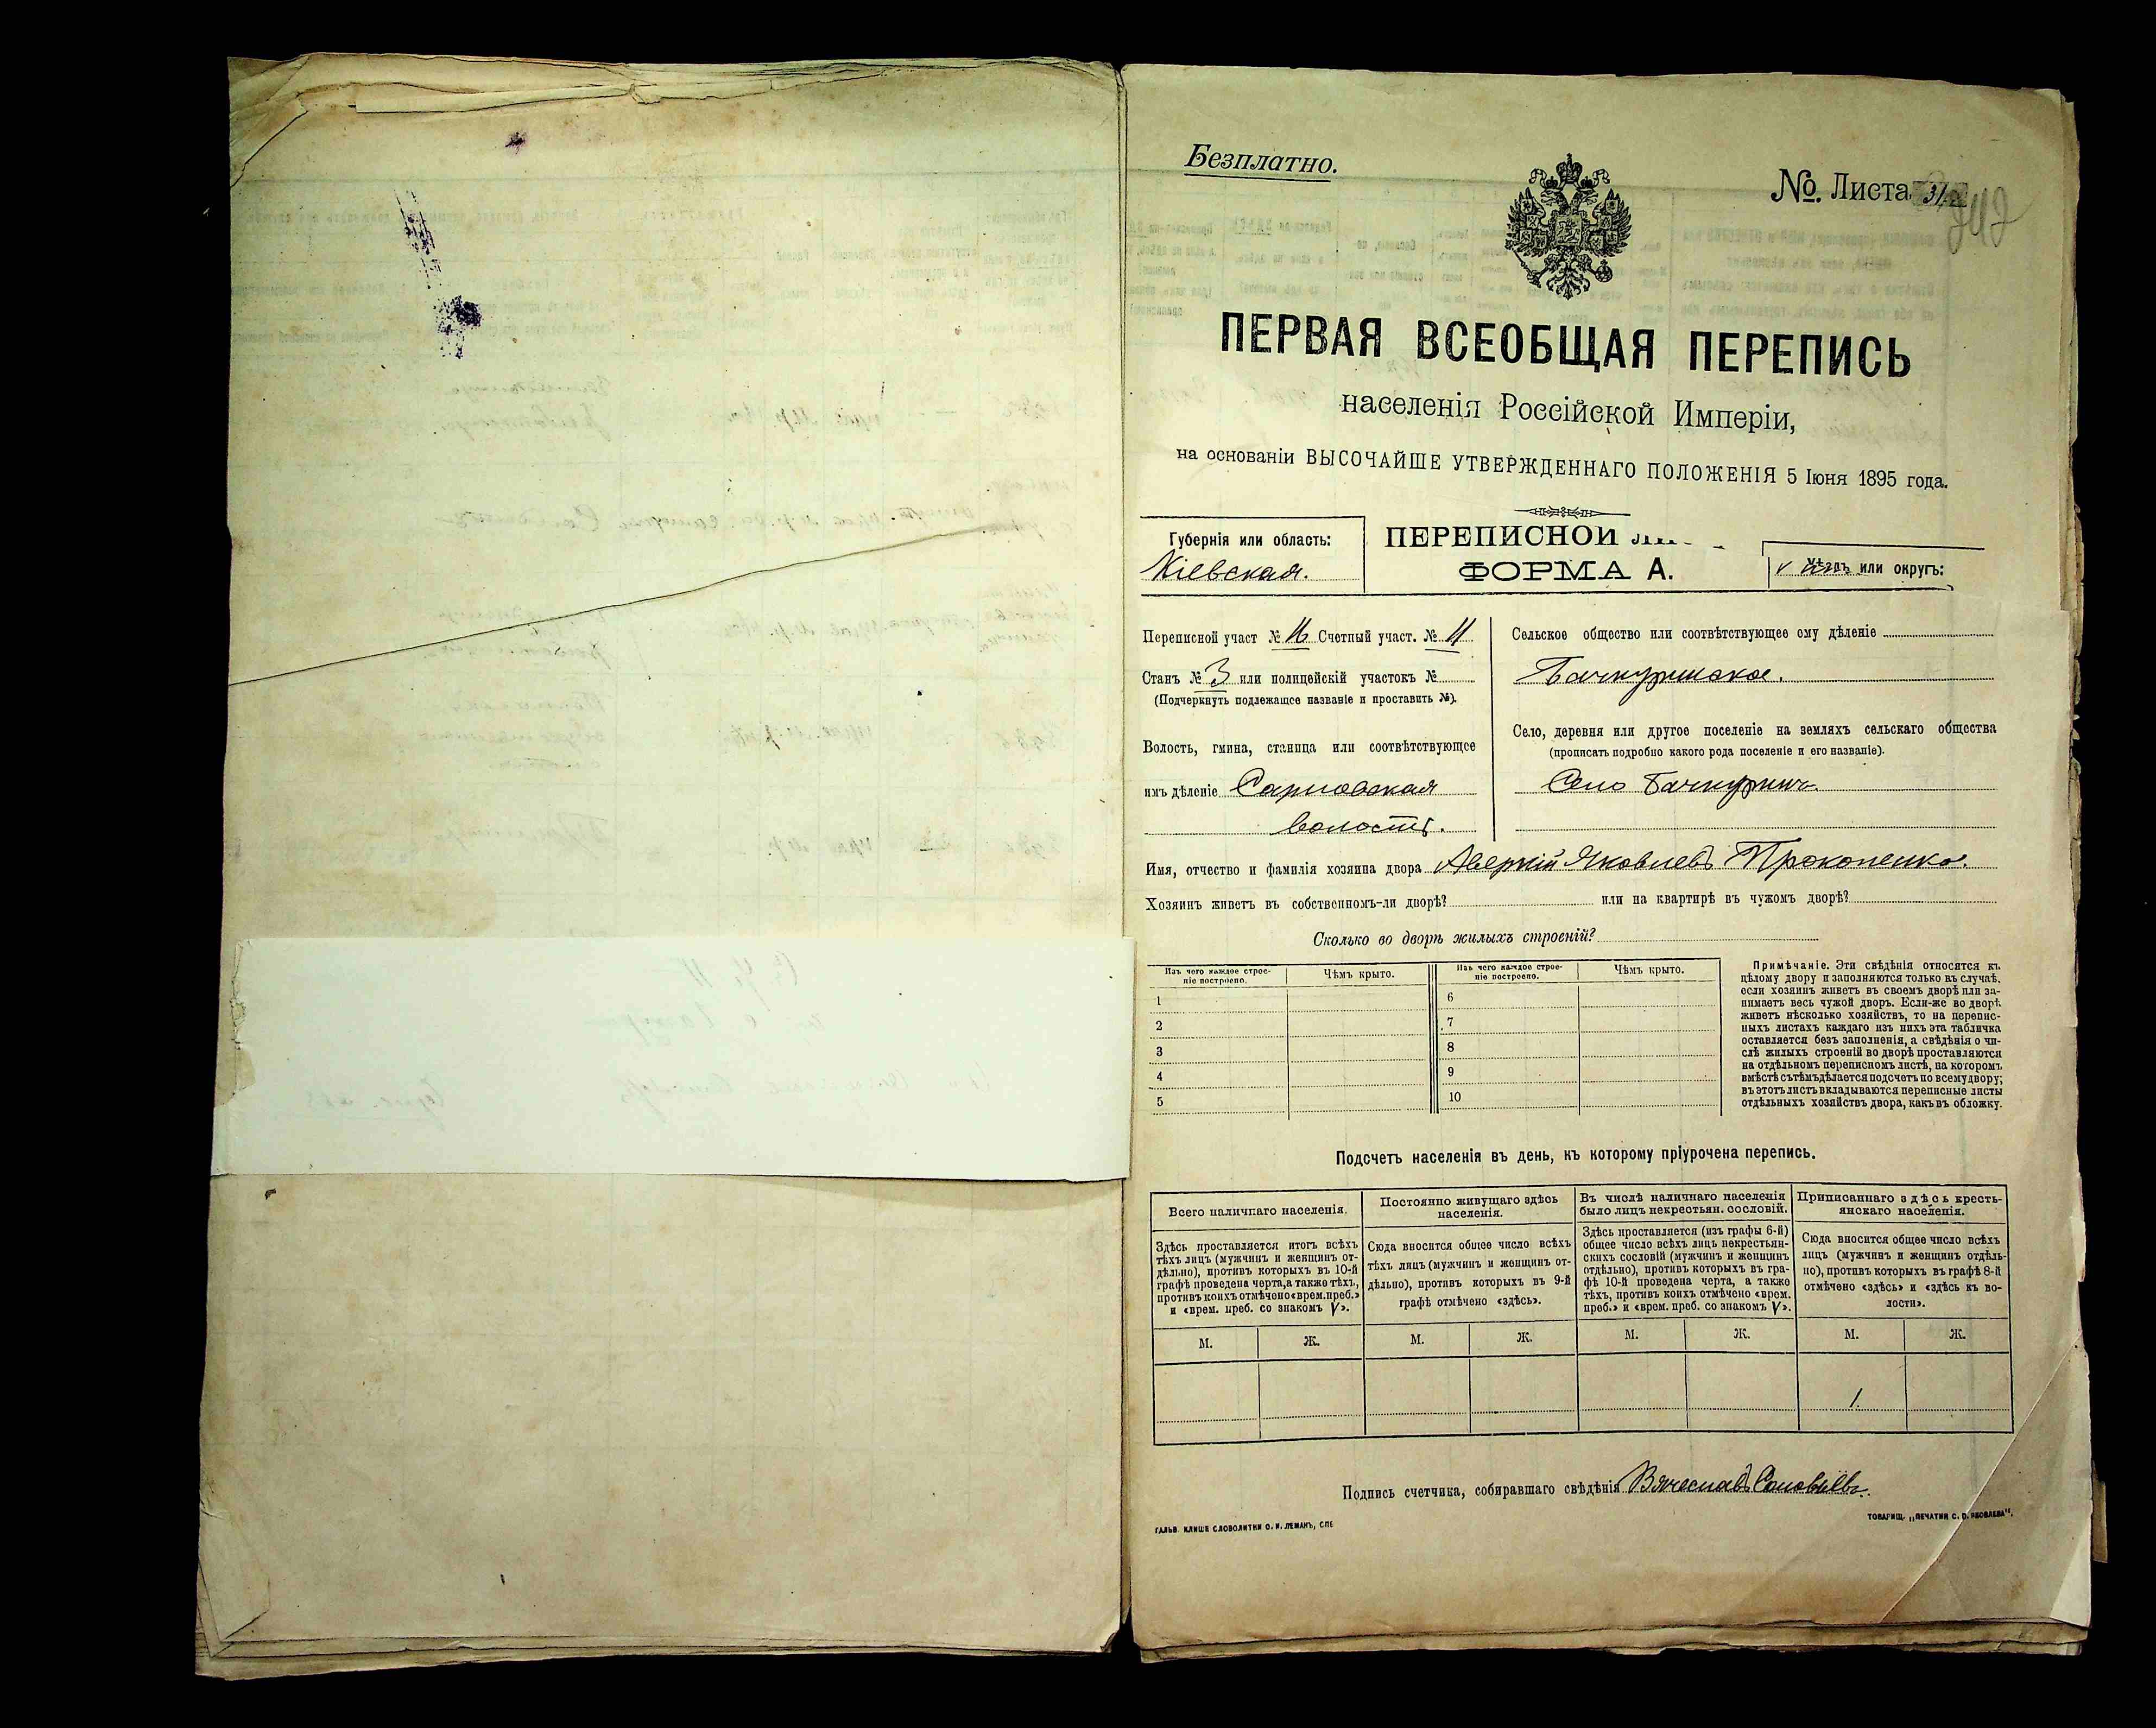 Безплатно.
№. Листа 31
242
ПЕРВАЯ ВСЕОБЩАЯ ПЕРЕПИСЬ
населенія Россійской Имперіи,
на основаніи ВЫСОЧАЙШЕ УТВЕРЖДЕННАГО ПОЛОЖЕНІЯ 5 Іюня 1895 года.
Губернія или область:
Кіевская.
ПЕРЕПИСНОЙ
ФОРМА А.
или округъ:
Переписной участ № Счетный участ. № 11
Станъ № 3 или полицейскій участокъ №
(Подчеркнуть подлежащее названіе и проставить №).
Волость, гмина, станица или соотвѣтствующее
имъ дѣленіе Сарновская
волость.
Сельское общество или соотвѣтствующее ему дѣленіе
Бачкуринское.
Село, деревня или другое поселеніе на земляхъ сельскаго общества
(прописать подробно какого рода поселеніе и его названіе).
Село Бачкурино
Имя, отчество и фамилія хозяина двора Аверкій Яковлевъ Прокопенко.
Хозяинъ живетъ въ собственномъ-ли дворѣ? или на квартирѣ въ чужомъ дворѣ?
Сколько во дворѣ жилыхъ строеній?
Изъ чего каждое строе-
ніе построено.
Чѣмъ крыто.
Изъ чего каждое строе-
ніе построено.
Чѣмъ крыто.
1
2
3
4
5
6
7
8
9
10
Примѣчаніе. Эти свѣдѣнія относятся къ
цѣлому двору и заполняются только въ случаѣ,
если хозяинъ живетъ въ своемъ дворѣ или за-
нимаетъ весь чужой дворъ. Если-же во дворѣ
живетъ нѣсколько хозяйствъ, то на перепис-
ныхъ листахъ каждаго изъ нихъ эта табличка
оставляется безъ заполненія, а свѣдѣнія о чи-
слѣ жилыхъ строеній во дворѣ проставляются
на отдѣльномъ переписномъ листѣ, на которомъ
вмѣстѣ съ тѣмъ дѣлается подсчетъ по всему двору;
въ этотъ листъ вкладываются переписные листы
отдѣльныхъ хозяйствъ двора, какъ въ обложку.
Подсчетъ населенія въ день, къ которому пріурочена перепись.
Всего наличнаго населенія.
Здѣсь проставляется итогъ всѣхъ
тѣхъ лицъ (мужчинъ и женщинъ от-
дѣльно), противъ которыхъ въ 10-й
графѣ проведена черта, а также тѣхъ,
противъ коихъ отмѣчено «врем. преб.»
и «врем. преб. со знакомъ V».
Постоянно живущаго здѣсь
населенія.
Сюда вносится общее число всѣхъ
тѣхъ лицъ (мужчинъ и женщинъ от-
дѣльно), противъ которыхъ въ 9-й
графѣ отмѣчено «здѣсь».
Въ числѣ наличнаго населенія
было лицъ некрестьян. сословій.
Здѣсь проставляется (изъ графы 6-й)
общее число всѣхъ лицъ некрестьян-
скихъ сословій (мужчинъ и женщинъ
отдѣльно), противъ которыхъ въ гра-
фѣ 10-й проведена черта, а также
тѣхъ, противъ коихъ отмѣчено «врем.
преб.» и «врем. преб. со знакомъ V».
Приписаннаго здѣсь кресть-
янскаго населенія.
Сюда вносится общее число всѣхъ
лицъ (мужчинъ и женщинъ отдѣль-
но), противъ которыхъ въ графѣ 8-й
отмѣчено «здѣсь» и «здѣсь къ во-
лости».
М. Ж. М. Ж. М. Ж. М. Ж.
1.
Подпись счетчика, собиравшаго свѣдѣнія Вячеславъ Соловьевъ.
ГАЛЬВ. КЛИШЕ СЛОВОЛИТНИ О. И. ЛЕМАНЪ, СПБ
ТОВАРИЩ. „ПЕЧАТНЯ С. П. ЯКОВЛЕВА“.